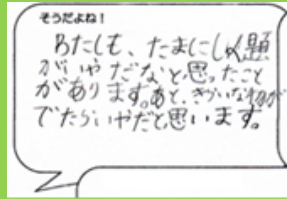 そうだよね！
わたしも、たまにしゅく題
がいやだなと思ったこと
があります。あと、きらいな物が
でたらいやだと思います。